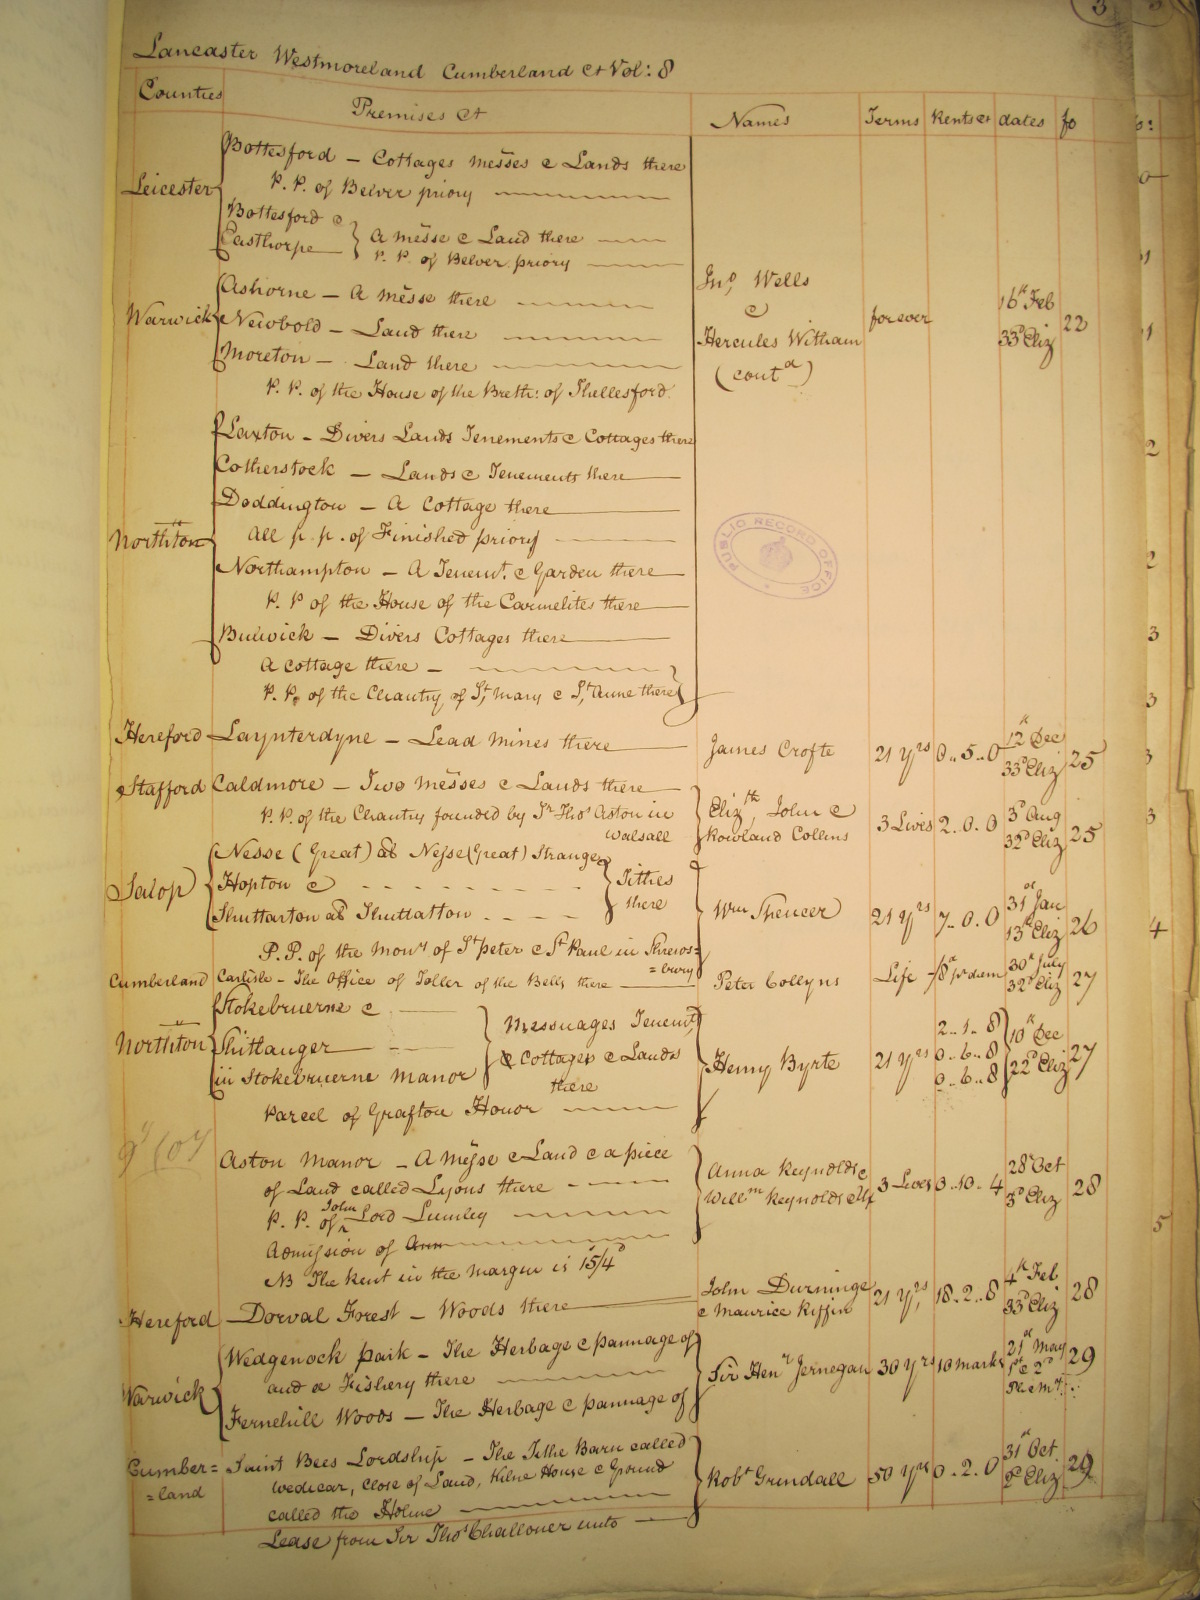 3
Lancaster Westmoreland Cumberland &c Vol: 8
Counties Premises &c Names Terms Rents &c dates fo
Leicester Bottesford — Cottages messes & Lands there
P. P. of Belver priory
Bottesford &
Easthorpe } A messe & Land there
P. P. of Belver priory
Warwick Ashorne — A messe there
Newbold — Land there
Moreton — Land there
P. P. of the House of the Breth: of Thellesford
Jno Wells
&
Hercules Witham
(contd)
forever 16th Feb 33d Eliz 22
Northton Laxton — Divers Lands Tenements & Cottages there
Cotherstock — Lands & Tenements there
Doddington — A Cottage there
All p. p. of Finished priory
Northampton — A Tenemt. & Garden there
P. P of the House of the Carmelites there
Bulwick — Divers Cottages there
A Cottage there —
P. P. of the Chantry of St. Mary & St. Anne there
PUBLIC RECORD OFFICE
Hereford Laynterdyne — Lead Mines there James Crofte 21 Yrs 0..5..0 12th Dec 33d Eliz 25
Stafford Caldmore — Two Messes & Lands there
P. P. of the Chantry founded by Sr Thos Aston in
Walsall
Elizth, John &
Rowland Collins 3 Lives 2..0.0 3d Aug 32d Eliz 25
Salop Nesse (Great) als Nesse (Great) Strange
Hopton &
Shuttarton als Shuttatton
} Tithes there
P. P. of the Mony of St Peter & St Paul in Shrews=
=bury
Wm Spencer 21 Yrs 7..0.0 31st Jan 13th Eliz 26
Cumberland Carlisle — The Office of Toller of the Bells there Peter Collyns Life /8d pr diem 30th July 32d Eliz 27
Northton Stokebruerne &
Shittanger
in Stokebruerne Manor
} Messuages Tenemts
& Cottages & Lands
there
Parcel of Grafton Honor
Henry Byrte 21 Yrs 2..1..8
0..6..8
0..6..8
10th Dec 22d Eliz 27
Aston Manor — A Messe & Land & a piece
of Land called Lyons there
P. P. of John Lord Lumley
Admission of Ann
NB The Rent in the Margin is 15/4d
Anna Reynolds &
Willm Reynolds 3 Lives 3..10..4 28th Oct 3d Eliz 28
Hereford Dorval Forest — Woods there John Durninge
& Maurice Kiffin 21 Yrs, 18..2..8 4th Feb 33d Eliz 28
Warwick Wedgenock Park — The Herbage & pannage of
and a Fishery there
Fernehill Woods — The Herbage & pannage of
Sir Heny Jernegan 30 Yrs 10 Marks 21st May 1st & 2d 29
Cumber=
=land Saint Bees Lordship — The Tithe Barn called
Wedicar, Close of Land, Kilne House & Ground
called the Holme
Lease from Sir Thos Challoner unto
Robt Grindall 50 Yrs 0..2..0 31st Oct. 2d Eliz 29